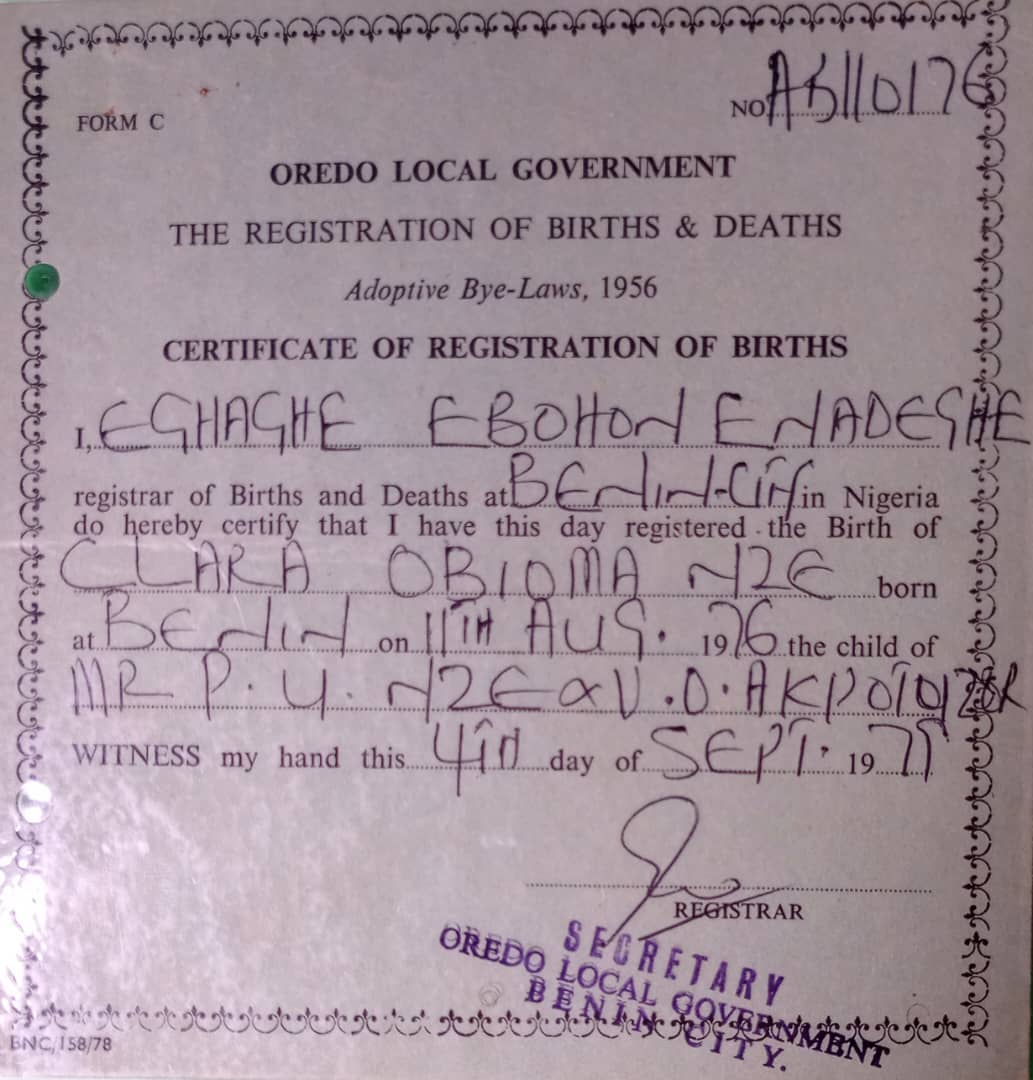 FORM C
NO. AB110176
OREDO LOCAL GOVERNMENT
THE REGISTRATION OF BIRTHS & DEATHS
Adoptive Bye-Laws, 1956
CERTIFICATE OF REGISTRATION OF BIRTHS
I, EGHAGHE EBOHON ENADEGHE
registrar of Births and Deaths at BENIN-CITY in Nigeria
do hereby certify that I have this day registered the Birth of
CLARA OBIOMA NZE born
at BENIN on 11TH AUG. 1976 the child of
MR P. U. NZE & V. O.
WITNESS my hand this 4TH day of SEPT. 1977
REGISTRAR
SECRETARY
OREDO LOCAL GOVERNMENT
BENIN CITY.
BNC/158/78